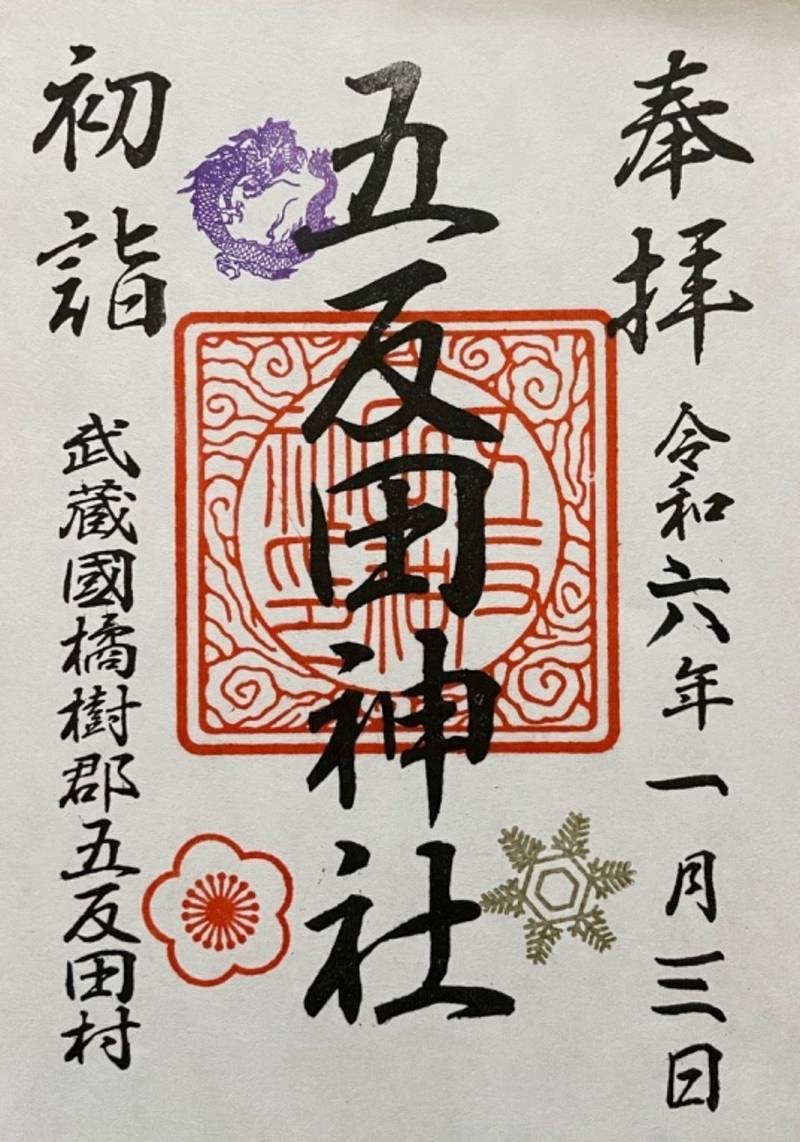 奉拝
令和六年一月三日
五反田神社
初詣
武蔵國橘樹郡五反田村